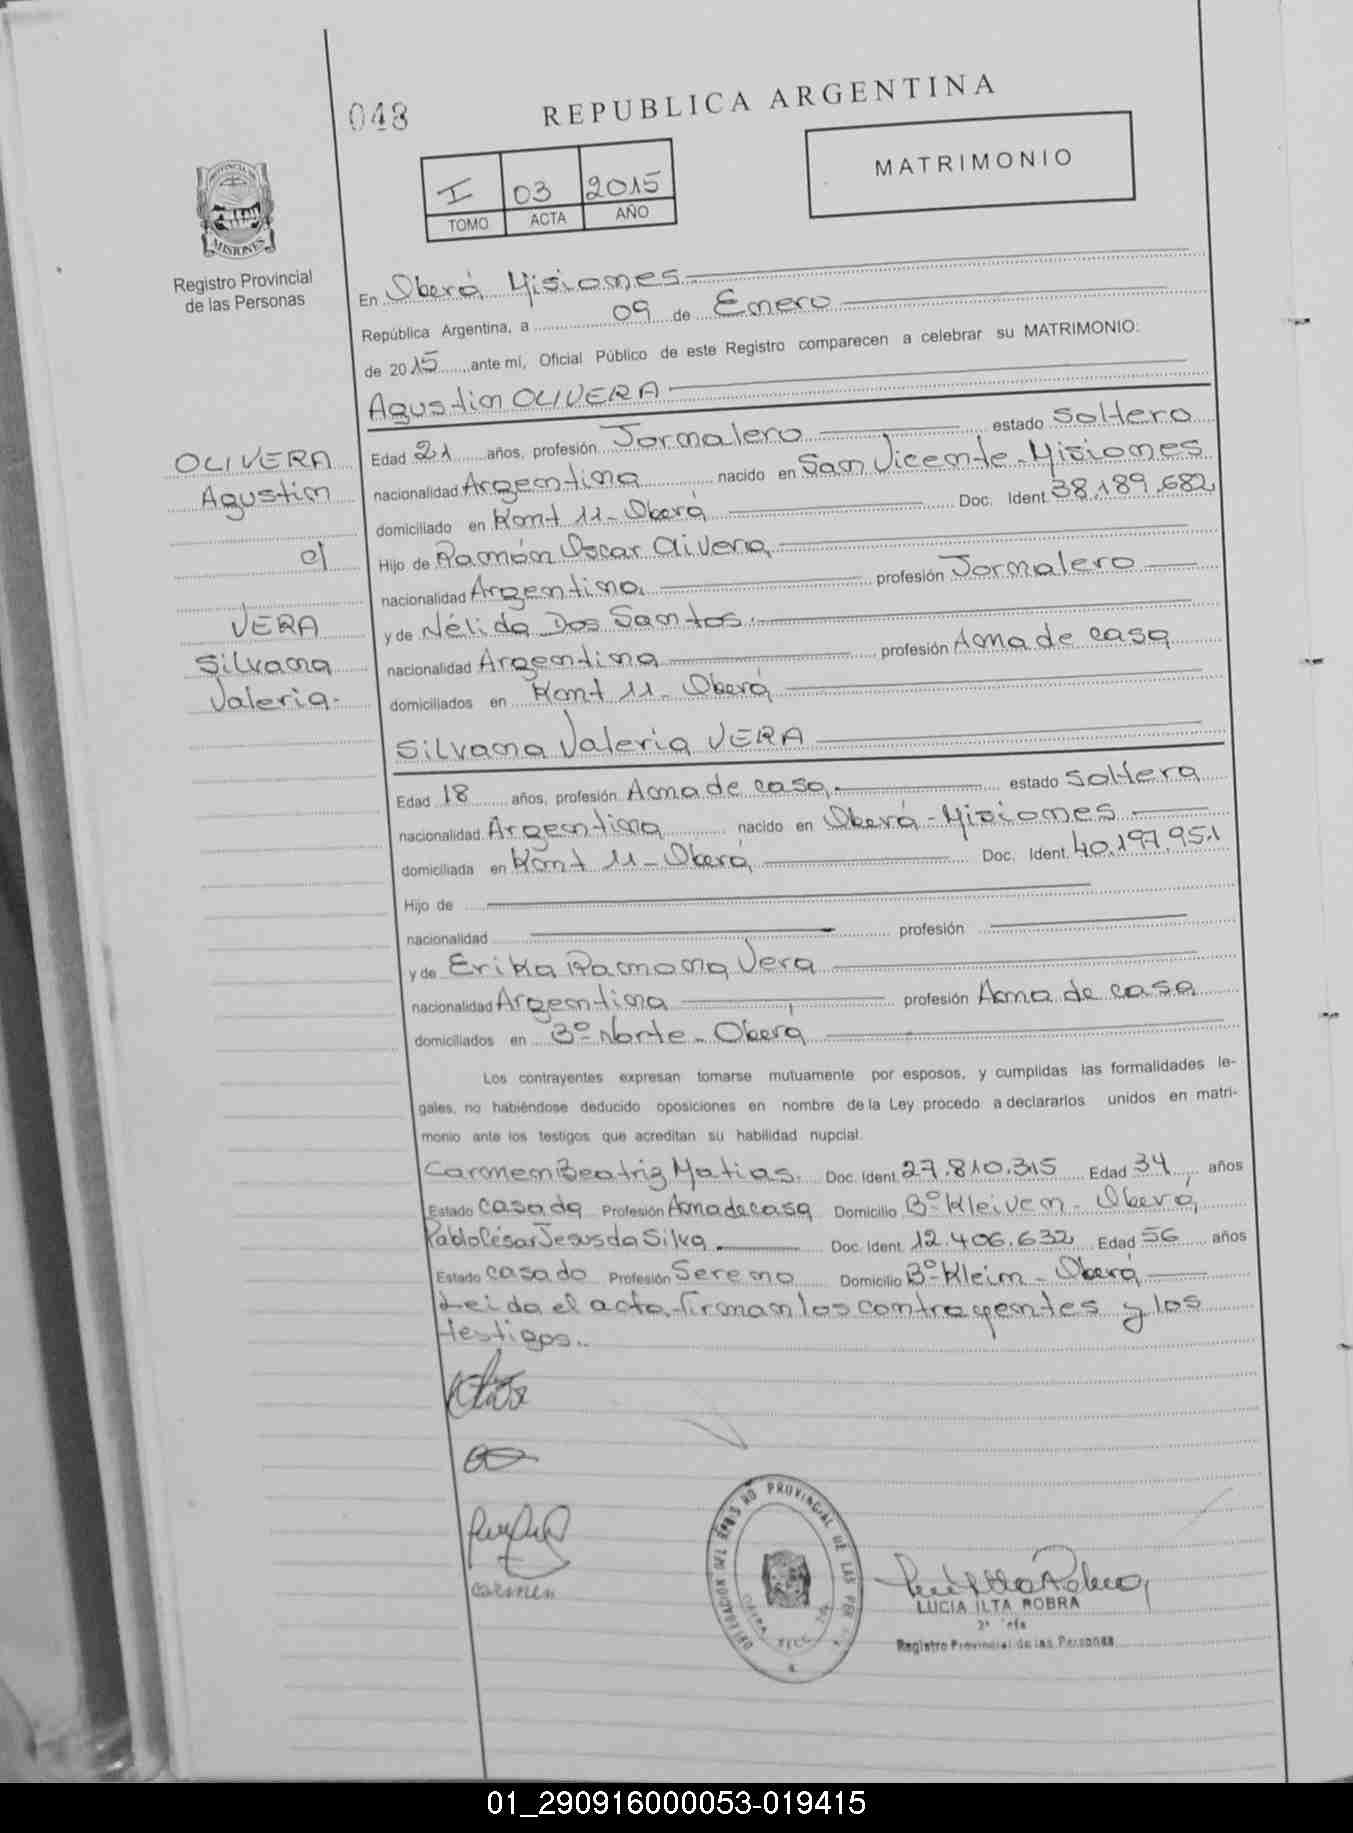 048
REPUBLICA ARGENTINA
MATRIMONIO
I 03 2015
TOMO ACTA AÑO
PROVINCIA DE
MISIONES
Registro Provincial
de las Personas
En Oberá Misiones
República Argentina, a 09 de Enero
de 2015 ante mí, Oficial Público de este Registro comparecen a celebrar su MATRIMONIO:
Agustin OLIVERA
Edad 21 años, profesión Jornalero estado Soltero
nacionalidad Argentina nacido en San Vicente-Misiones
domiciliado en Km 11-Oberá Doc. Ident. 38.189.682
Hijo de Ramón Oscar Olivera
nacionalidad Argentina profesión Jornalero
y de Nélida Dos Santos.
nacionalidad Argentina profesión Ama de casa
domiciliados en Km 11-Oberá
OLIVERA
Agustin
c/
VERA
Silvana
Valeria.
Silvana Valeria VERA
Edad 18 años, profesión Ama de casa estado Soltera
nacionalidad Argentina nacido en Oberá-Misiones
domiciliada en Km 11-Oberá Doc. Ident. 40.197.951
Hijo de
nacionalidad profesión
y de Erika Ramona Vera
nacionalidad Argentina profesión Ama de casa
domiciliados en Bº Norte-Oberá
Los contrayentes expresan tomarse mutuamente por esposos, y cumplidas las formalidades le-
gales, no habiéndose deducido oposiciones en nombre de la Ley procedo a declararlos unidos en matri-
monio ante los testigos que acreditan su habilidad nupcial.
Carmen Beatriz Matias. Doc. Ident. 27.810.315 Edad 34 años
Estado Casada Profesión Ama de casa Domicilio Bº Kleiven-Oberá
Pablo César Jesus da Silva Doc. Ident. 12.406.632 Edad 56 años
Estado Casado Profesión Sereno Domicilio Bº Klein-Oberá
Leida el acta, firman los contrayentes y los
testigos.
carmen
DELEGACION DEL REGISTRO PROVINCIAL DE LAS PER
LUCIA ILTA ROBRA
2º Jefe
Registro Provincial de las Personas
01_290916000053-019415